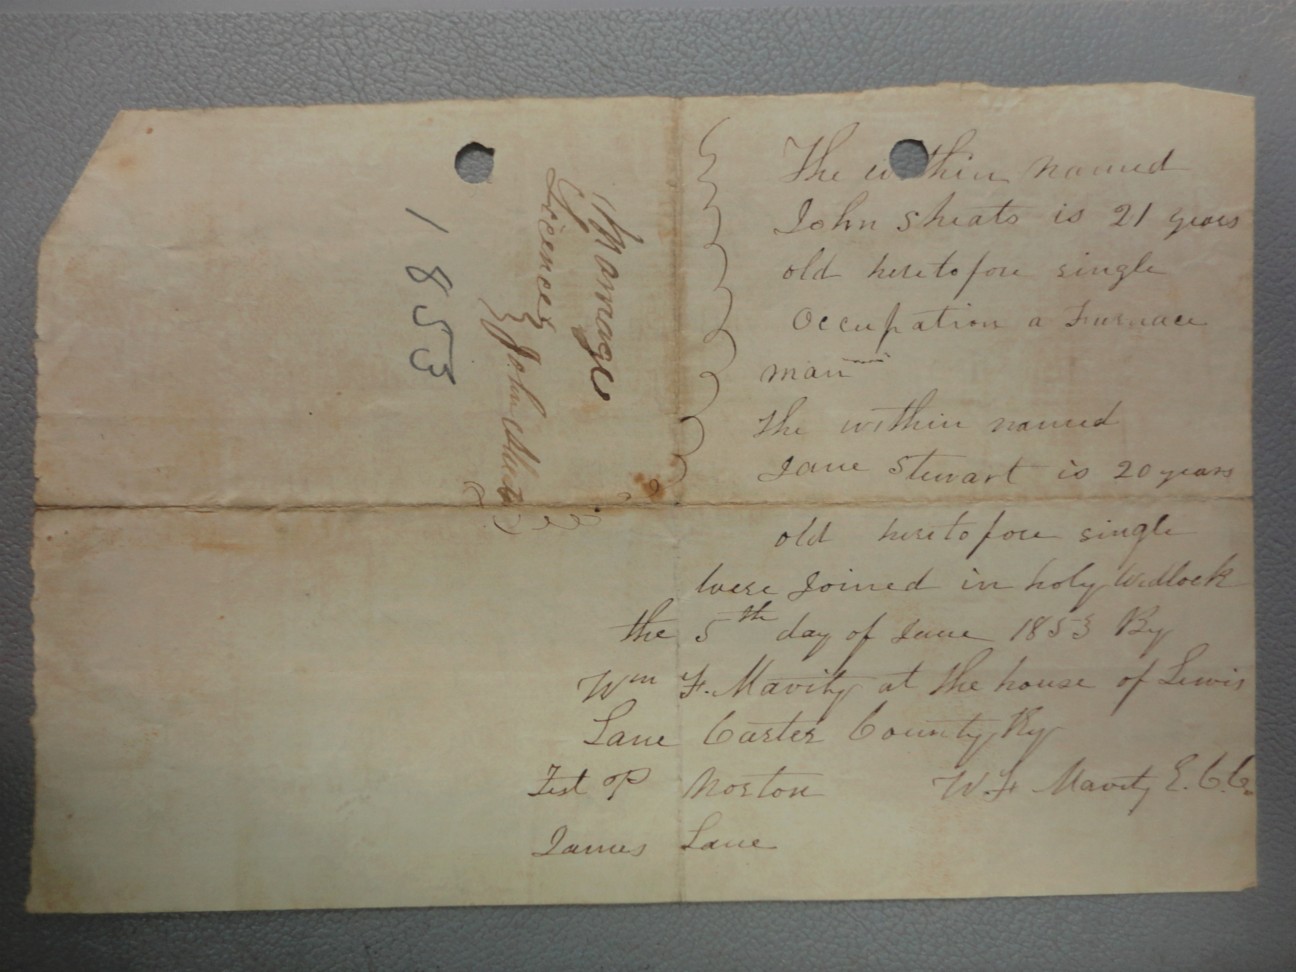 Marriage
Licence
John Sheats
1853
The within named
John Sheats is 21 years
old heretofore single
Occupation a Furnace
man
The within named
Jane Stewart is 20 years
old heretofore single
were Joined in holy Wedlock
the 5th day of June 1853 By
Wm F. Mavity at the house of Lewis
Lane Carter County Ky
Test P Norton W. F. Mavity E. C. C.
James Lane